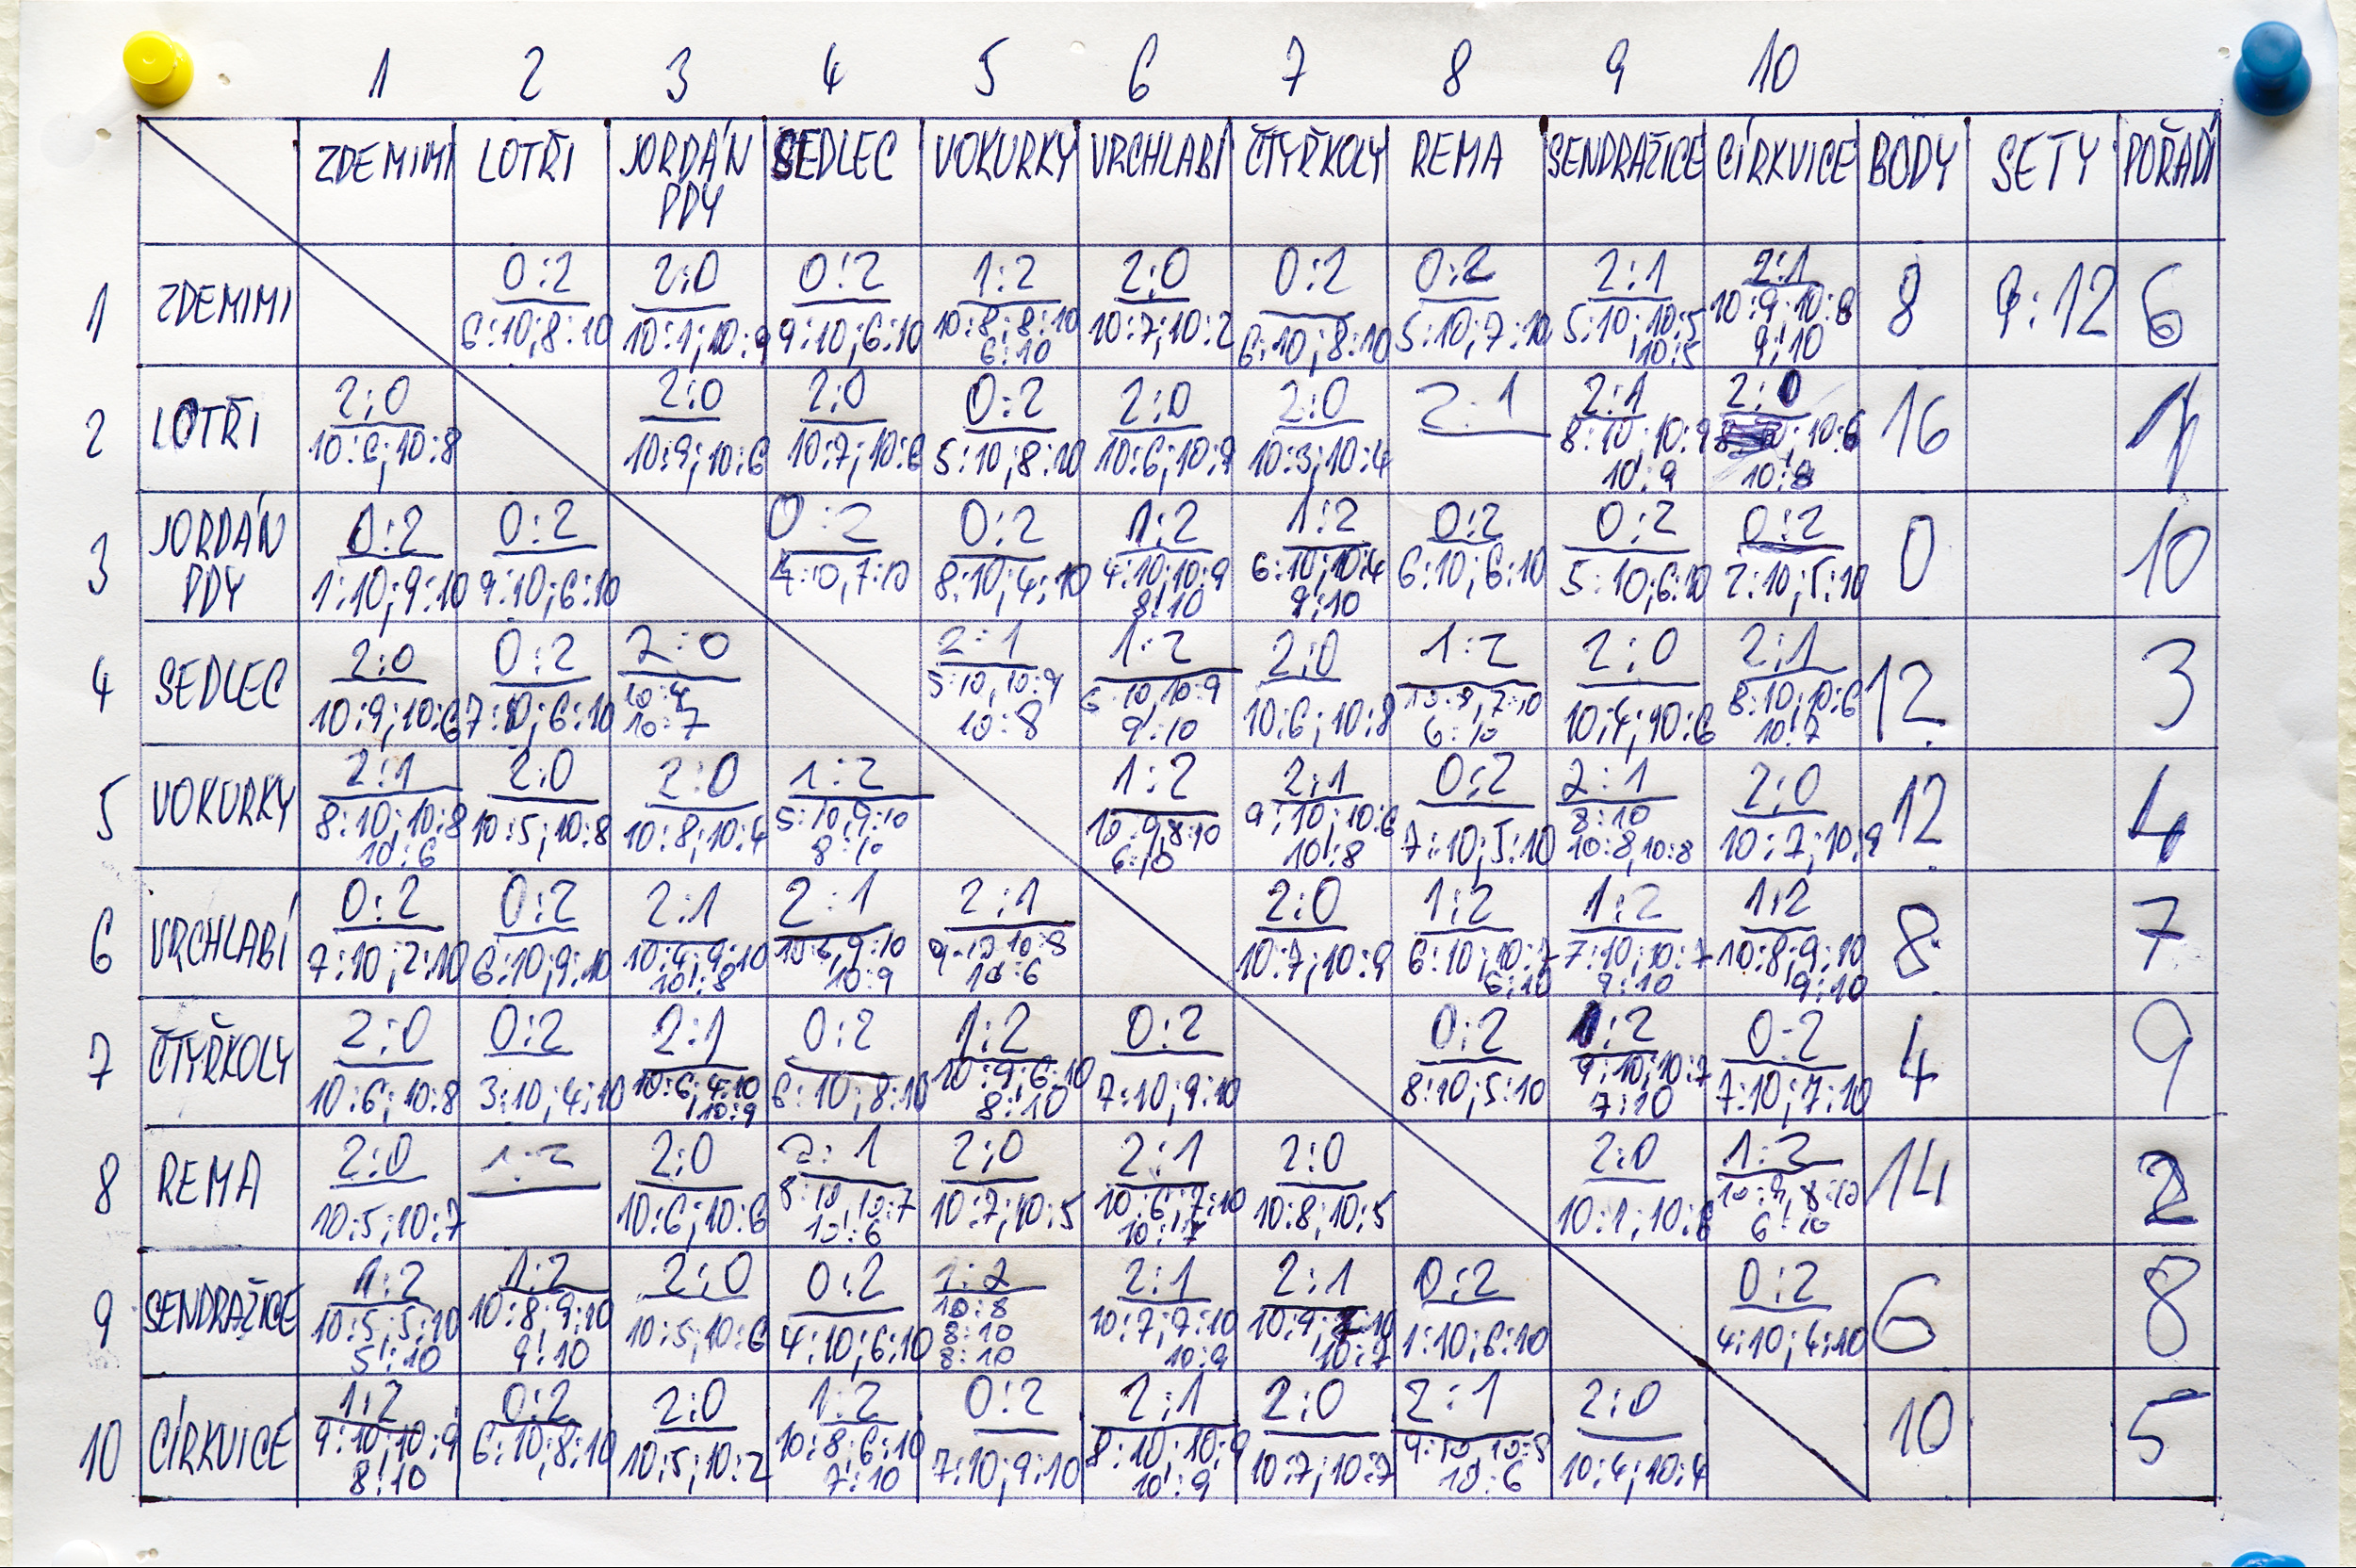 1 2 3 4 5 6 7 8 9 10
ZDEMIMI LOTŘI JORDÁN SEDLEC VOKURKY VRCHLABÍ ČTYŘKOLY REMA SENDRAŽICE CÍRKVICE BODY SETY POŘADÍ
PDY
0:2 2:0 0:2 1:2 2:0 0:2 0:2 2:1 2:1
1 ZDEMIMI 6:10;8:10 10:1;10:9 9:10;6:10 10:8;8:10 10:7;10:2 6:10;8:10 5:10;7:10 5:10;10:5 10:9;10:8 8 9:12 6
6:10 10:5 9:10
2:0 2:0 2:0 0:2 2:0 2:0 2:1 2:1 2:0
2 LOTŘI 10:6;10:8 10:9;10:6 10:7;10:6 5:10;8:10 10:6;10:9 10:3;10:4 8:10;10:9 10:6 16 1
10:9 10:8
JORDÁN 0:2 0:2 0:2 0:2 1:2 1:2 0:2 0:2 0:2
3 PDY 1:10;9:10 9:10;6:10 4:10,7:10 8:10;4:10 4:10;10:9 6:10;10:4 6:10;6:10 5:10;6:10 2:10;5:10 0 10
8:10 9:10
2:0 0:2 2:0 2:1 1:2 2:0 1:2 2:0 2:1
4 SEDLEC 10:9;10:6 7:10;6:10 10:4 5:10,10:9 6:10,10:9 10:6;10:8 10:8,7:10 10:4;10:6 8:10;10:6 12 3
10:7 10:8 9:10 6:10 10:7
2:1 2:0 2:0 1:2 1:2 2:1 0:2 2:1 2:0
5 VOKURKY 8:10;10:8 10:5;10:8 10:8;10:4 5:10,9:10 10:9,8:10 9:10;10:6 7:10;5:10 8:10 10:7;10:9 12 4
10:6 8:10 6:10 10:8 10:8,10:8
0:2 0:2 2:1 2:1 2:1 2:0 1:2 1:2 1:2
6 VRCHLABÍ 7:10;2:10 6:10;9:10 10:4;9:10 10:6,9:10 9:10 10:8 10:7;10:9 6:10;10:7 7:10;10:7 10:8;9:10 8 7
10:8 10:9 10:6 6:10 9:10 9:10
2:0 0:2 2:1 0:2 1:2 0:2 0:2 1:2 0-2
7 ČTYŘKOLY 10:6;10:8 3:10;4:10 10:6;4:10 6:10;8:10 10:9;6:10 7:10;9:10 8:10;5:10 9:10;10:7 7:10;7:10 4 9
10:9 8:10 7:10
2:0 1:2 2:0 2:1 2:0 2:1 2:0 2:0 1:2
8 REMA 10:5;10:7 10:6;10:6 8:10,10:7 10:7;10:5 10:6;7:10 10:8;10:5 10:1;10:6 10:9,8:10 14 2
10:6 10:7 6:10
1:2 1:2 2:0 0:2 1:2 2:1 2:1 0:2 0:2
9 SENDRAŽICE 10:5;5:10 10:8;9:10 10:5;10:6 4:10;6:10 10:8 10:7;7:10 10:9;7:10 1:10;6:10 4:10;4:10 6 8
5:10 9:10 8:10 10:9 10:7
8:10
1:2 0:2 2:0 1:2 0:2 2:1 2:0 2:1 2:0
10 CÍRKVICE 9:10;10:9 6:10;8:10 10:5;10:2 10:8;6:10 7:10;9:10 8:10;10:9 10:7;10:7 9:10,10:8 10:4;10:4 10 5
8:10 7:10 10:9 10:6